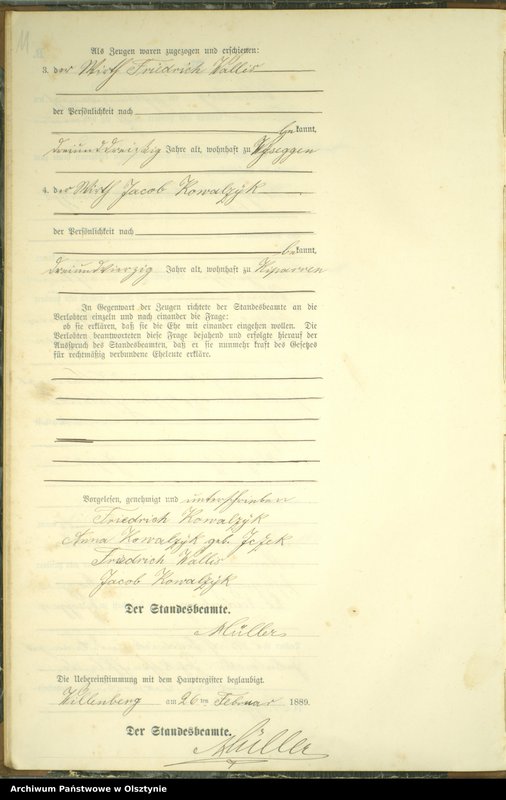 11
Als Zeugen waren zugezogen und erschienen:
3. der Wirth Friedrich Wallis
der Persönlichkeit nach
be kannt,
dreiunddreißig Jahre alt, wohnhaft zu Wyseggen
4. der Wirth Jacob Kowalzÿk
der Persönlichkeit nach
be kannt,
dreiundvierzig Jahre alt, wohnhaft zu Kiparren
In Gegenwart der Zeugen richtete der Standesbeamte an die
Verlobten einzeln und nach einander die Frage:
ob sie erklären, daß sie die Ehe mit einander eingehen wollen. Die
Verlobten beantworteten diese Frage bejahend und erfolgte hierauf der
Ausspruch des Standesbeamten, daß er sie nunmehr kraft des Gesetzes
für rechtmäßig verbundene Eheleute erkläre.
Vorgelesen, genehmigt und unterschrieben
Friedrich Kowalzÿk
Anna Kowalzÿk geb. Jezek
Friedrich Wallis
Jacob Kowalzÿk
Der Standesbeamte.
Müller
Die Uebereinstimmung mit dem Hauptregister beglaubigt.
Willenberg am 26 ten Februar 1889.
Der Standesbeamte.
Müller
Archiwum Państwowe w Olsztynie